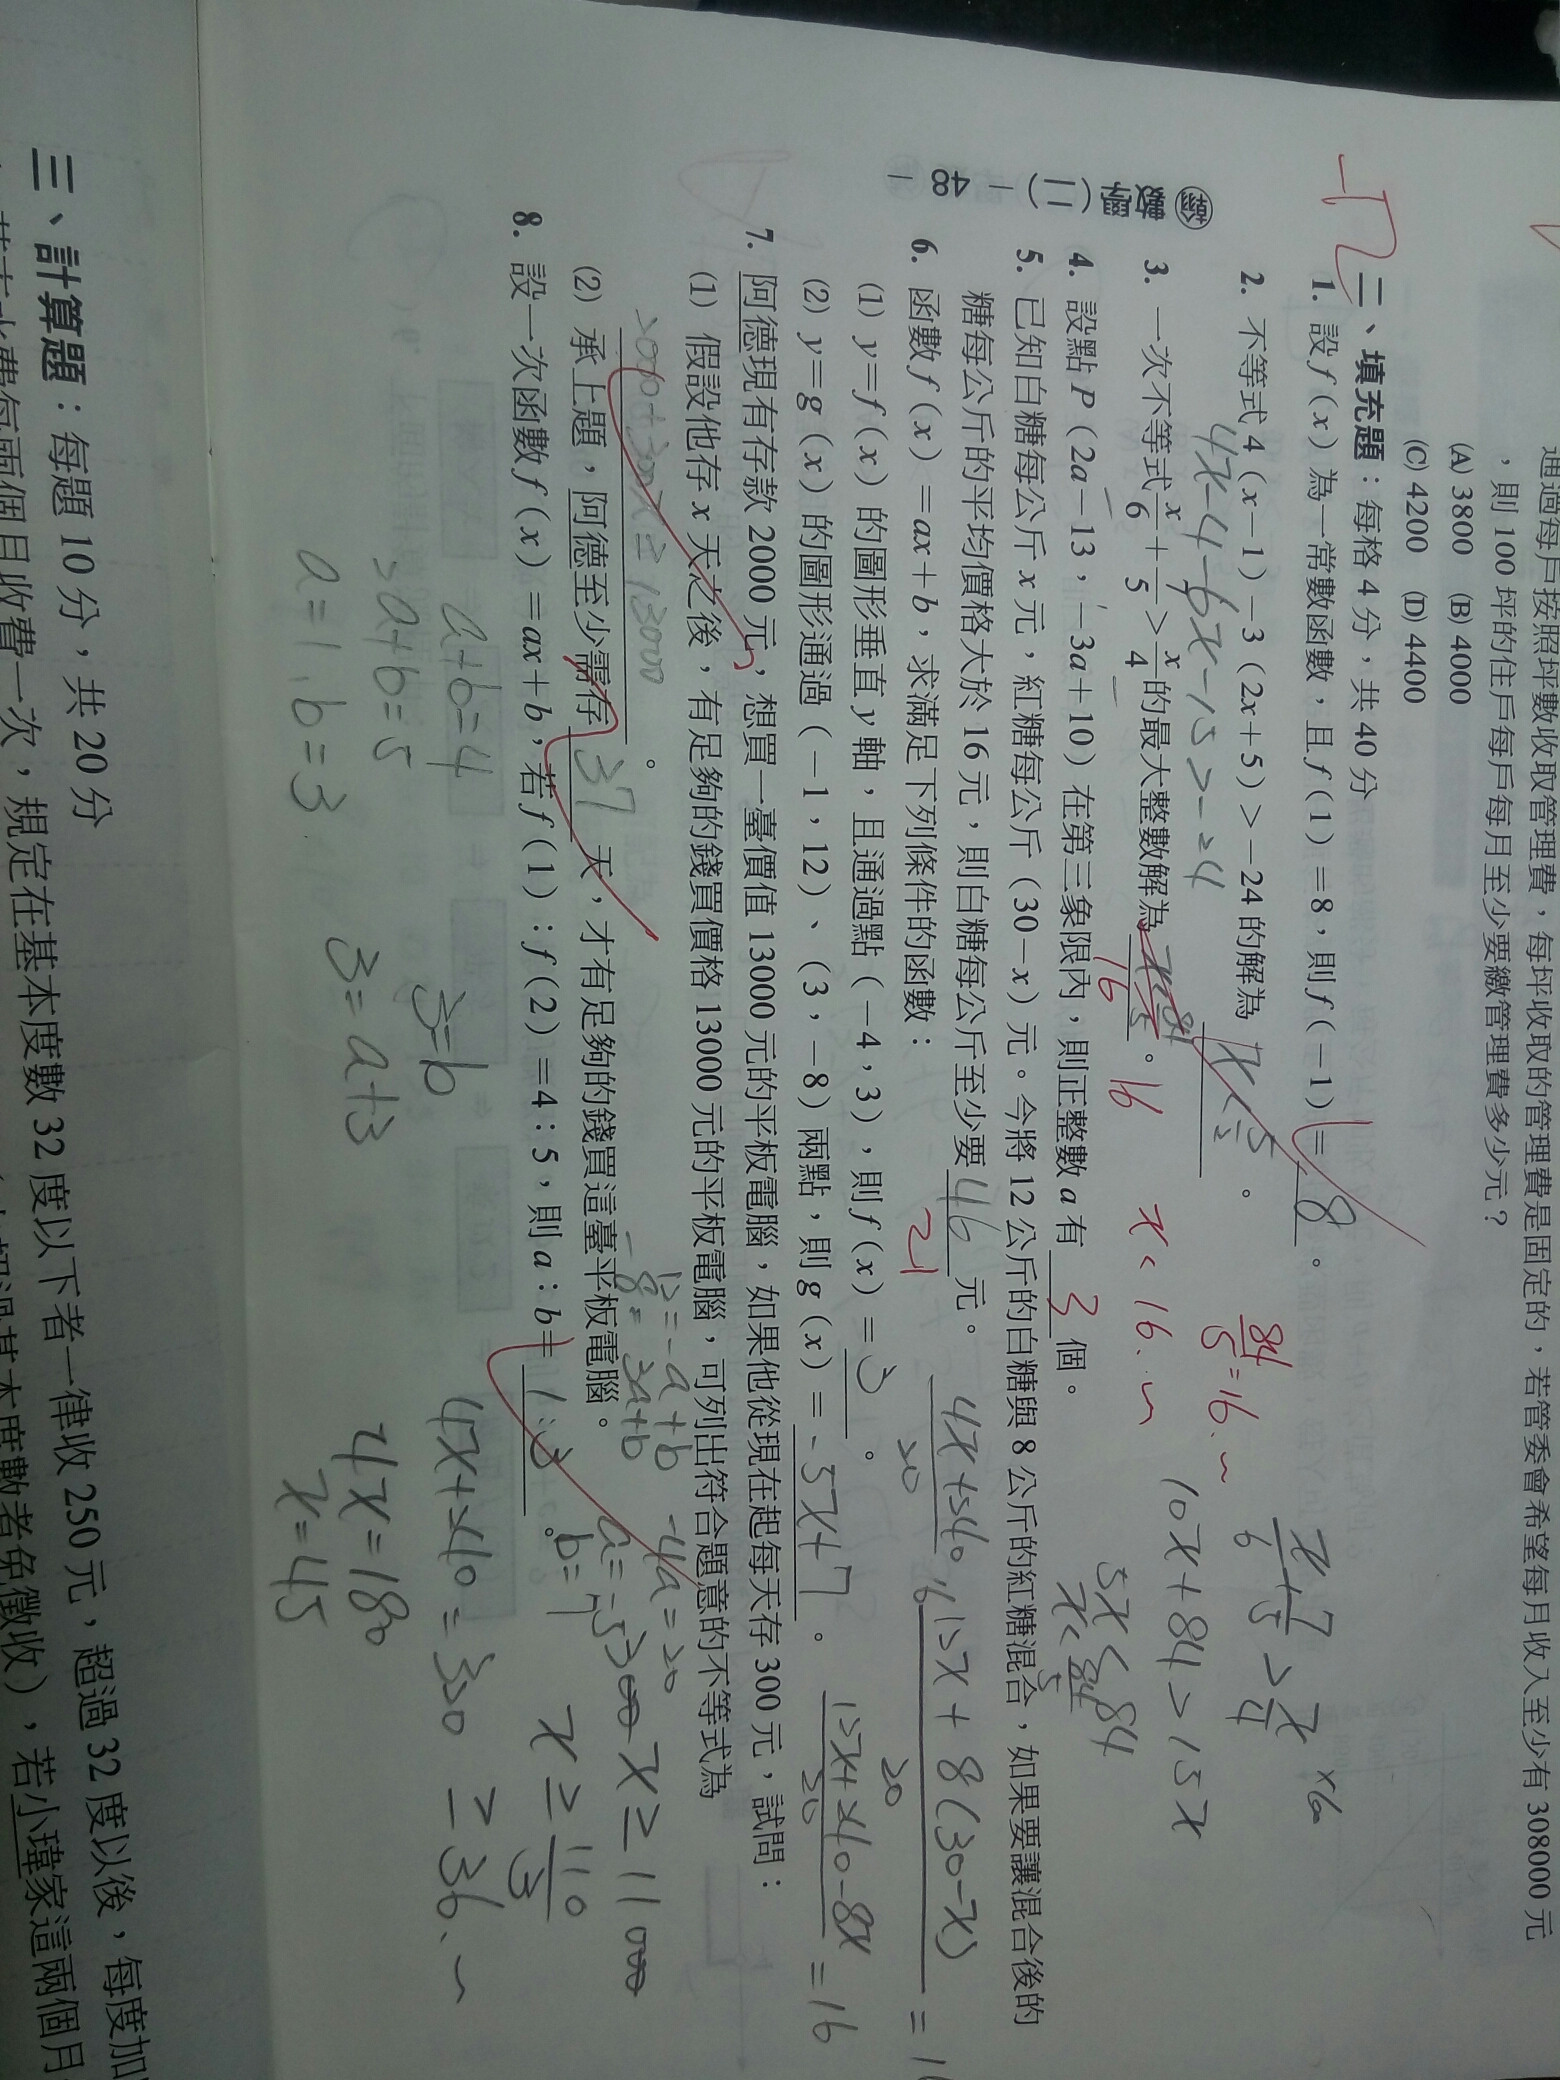 通過每戶按照坪數收取管理費，每坪收取的管理費是固定的，若管委會希望每月收入至少有308000元
，則100坪的住戶每戶每月至少要繳管理費多少元？
(A) 3800 (B) 4000
(C) 4200 (D) 4400
二、填充題：每格4分，共40分
1. 設f(x)為一常數函數，且f(1)=8，則f(-1)=8。
2. 不等式4(x-1)-3(2x+5)>-24的解為x<5/2。
4x-4-6x-15>-24
3. 一次不等式x/6+7/5>x/4的最大整數解為16。
16
x<16.~
84/5=16.~
x/6+7/5>x/4 ×60
10x+84>15x
5x<84
x<84/5
4. 設點P(2a-13，-3a+10)在第三象限內，則正整數a有3個。
5. 已知白糖每公斤x元，紅糖每公斤(30-x)元。今將12公斤的白糖與8公斤的紅糖混合，如果要讓混合後的
糖每公斤的平均價格大於16元，則白糖每公斤至少要46元。
21
4x+240/20
12x+8(30-x)/20=16
12x+240-8x/20=16
6. 函數f(x)=ax+b，求滿足下列條件的函數：
(1) y=f(x)的圖形垂直y軸，且通過點(-4，3)，則f(x)=3。
(2) y=g(x)的圖形通過(-1，12)、(3，-8)兩點，則g(x)=-5x+7。
12=-a+b
-8=3a+b
-4a=20
a=-5
b=7
7. 阿德現有存款2000元，想買一臺價值13000元的平板電腦，如果他從現在起每天存300元，試問：
(1) 假設他存x天之後，有足夠的錢買價格13000元的平板電腦，可列出符合題意的不等式為
2000+300x≥13000。
300x≥11000
x≥110/3
≥36.~
(2) 承上題，阿德至少需存37天，才有足夠的錢買這臺平板電腦。
8. 設一次函數f(x)=ax+b，若f(1)：f(2)=4：5，則a：b=1:3。
a+b=4
2a+b=5
3=b
a=1,b=3
3=a+3
4x+240=320
4x=180
x=45
三、計算題：每題10分，共20分
每兩個月收費一次，規定在基本度數32度以下者一律收250元，超過32度以後，每度加
基本度數者免徵收)，若小瑋家這兩個月
翰 數學(二) - 48 -